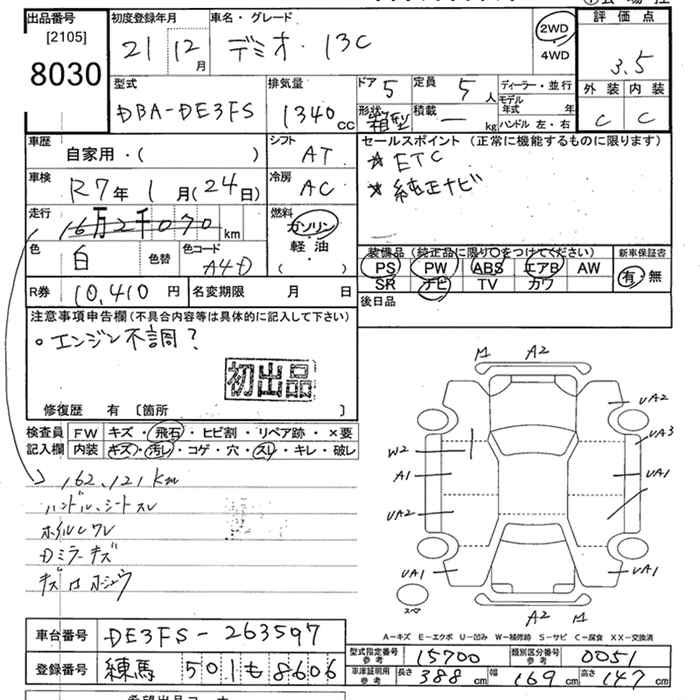 出品番号
[2105]
8030
初度登録年月
21 12月
車名・グレード
デミオ・13C
2WD
4WD
評価点
3.5
外装 内装
C C
型式
DBA-DE3FS
排気量
1340cc
ドア 5
定員 5人
ディーラー・並行
形状 箱型
積載 ー kg
モデル年式 年
ハンドル 左・右
車歴
自家用・( )
シフト
AT
車検
R7年1月(24日)
冷房
AC
走行
16万2千070km
燃料
ガソリン
軽・油
( )
色
白
色替
色コード
A4D
R券 10,410円
名変期限 月 日
セールスポイント (正常に機能するものに限ります)
* ETC
* 純正ナビ
装備品 (純正品に限り○をつけてください)
新車保証書
PS PW ABS エアB AW
有・無
SR ナビ TV カワ
後日品
注意事項申告欄(不具合内容等は具体的に記入して下さい)
。エンジン不調?
初出品
修復歴 有 〔箇所 〕
検査員 FW キズ・飛石・ヒビ割・リペア跡・×要
記入欄 内装 キズ・汚レ・コゲ・穴・スレ・キレ・破レ
162,121km
ハンドル、シートスレ
ホイルワレ
Dミラーキズ
M A2
UA2
UA3
W2
A1
UA1
UA2
UA1
UA1
スペア
A2 M
A-キズ E-エクボ U-凹み W-補修跡 S-サビ C-腐食 XX-交換済
車台番号 DE3FS-263597
登録番号 練馬 501も8606
型式指定番号 参考 15700
類別区分番号 参考 0051
車庫証明用 参考 長さ 388cm 幅 169cm 高さ 147cm